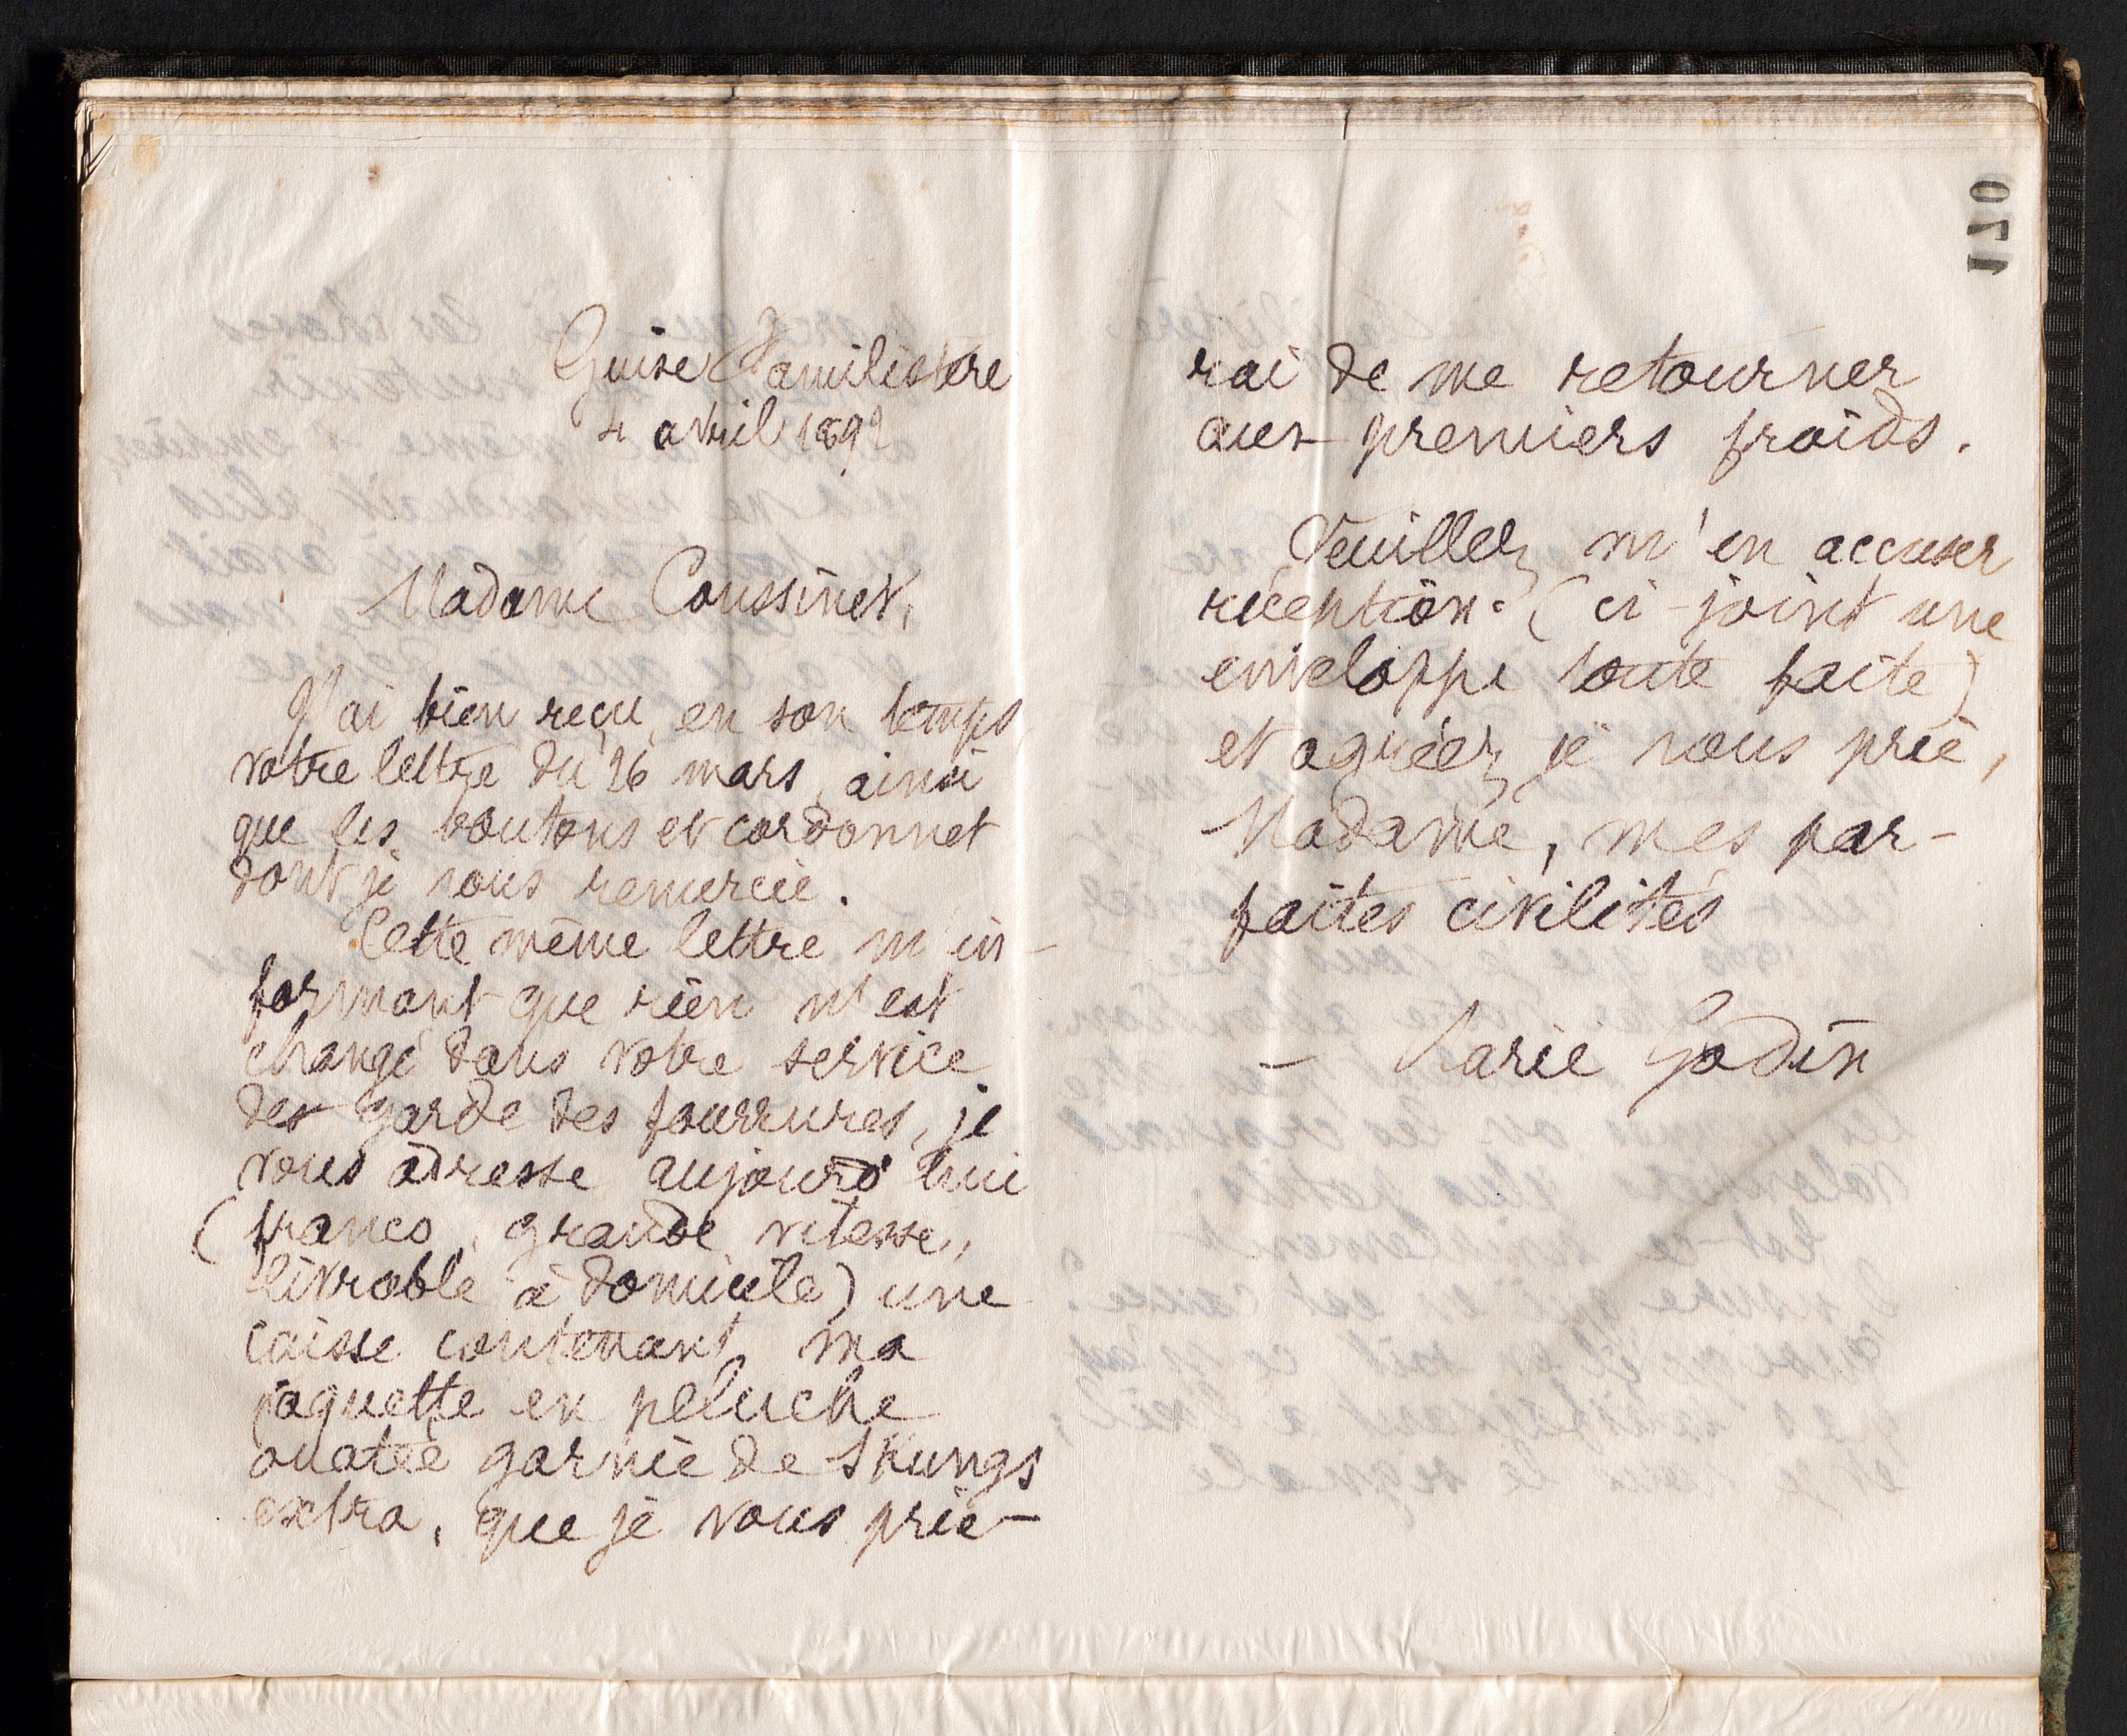 Guise Familistère
4 avril 1892
Madame Coussinet,
J'ai bien reçu, en son temps
votre lettre du 26 mars, ainsi
que les boutons et cordonnet
dont je vous remercie.
Cette même lettre m'in-
formant que rien n'est
changé dans votre service
des garde des fourrures, je
vous adresse aujourd'hui
(franco, grande vitesse,
livrable à domicile) une
caisse contenant ma
jaquette en peluche
ouatée garnie de Skungs
extra, que je vous prie-
120
rai de me retourner
aux premiers froids.
Veuillez m'en accuser
réception. (ci-joint une
enveloppe toute faite)
et agréez, je vous prie,
Madame, mes par-
faites civilités
- Marie Godin